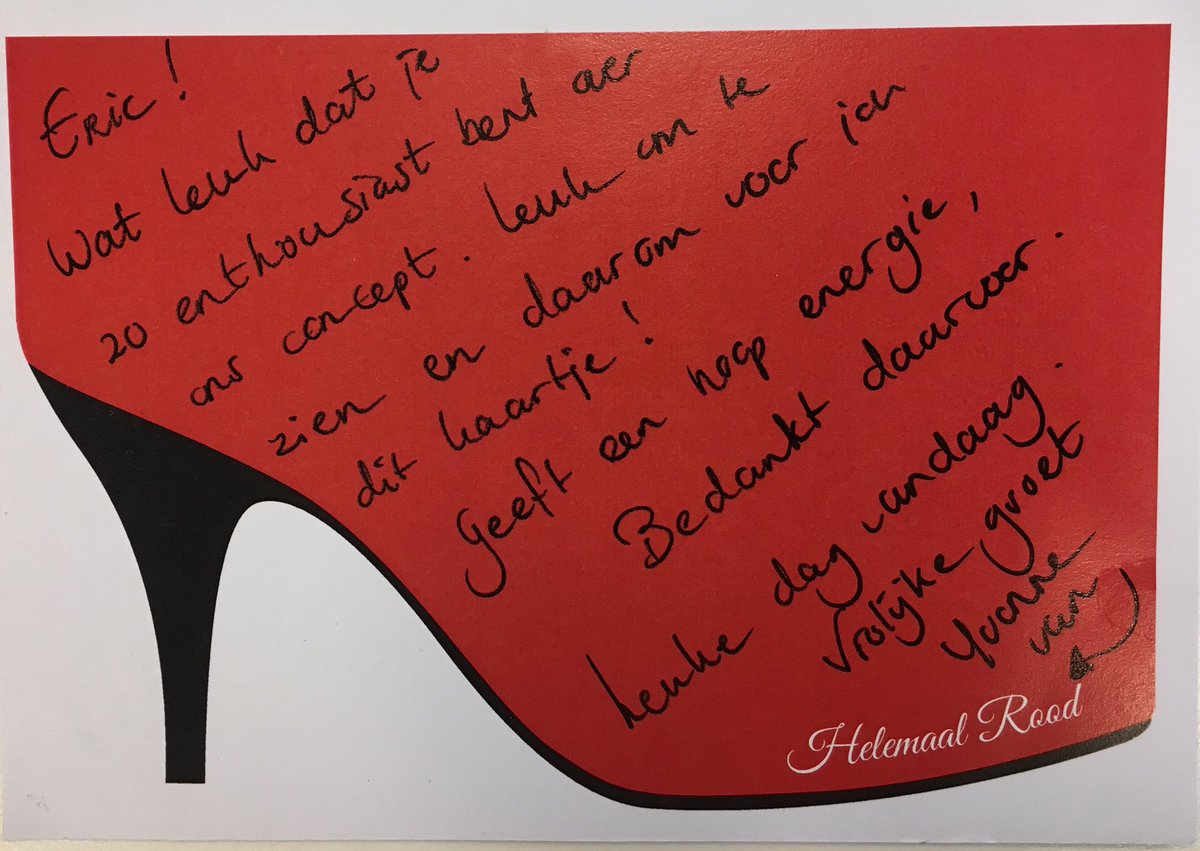 Eric!
Wat leuk dat je
zo enthousiast bent over
ons concept. Leuk om te
zien en daarom voor jou
dit kaartje!
Geeft een hoop energie,
Bedankt daarvoor.
Leuke dag vandaag.
Vrolijke groet
Yvonne
van
Helemaal Rood